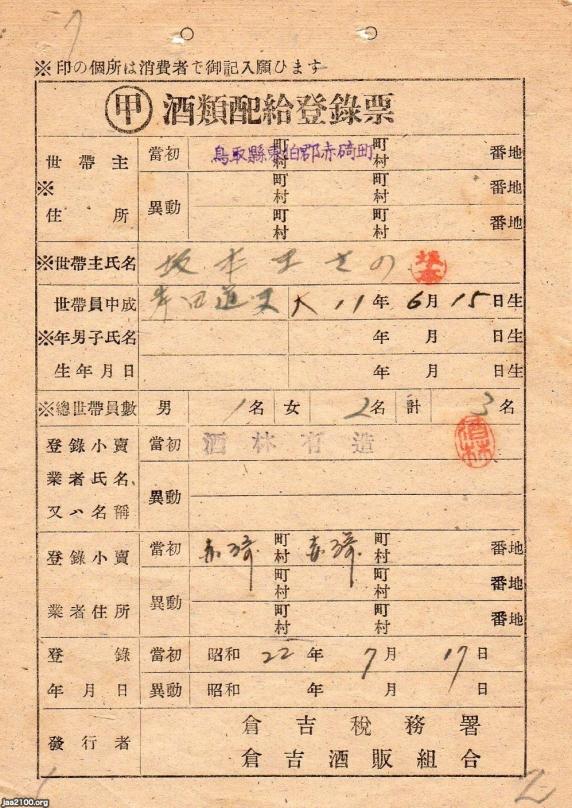 ※印の個所は消費者で御記入願ひます
甲 酒類配給登錄票
世帶主 當初 鳥取縣東伯郡赤碕町 町村 町村 番地
※
住所 異動 町村 町村 番地
町村 町村 番地
※世帶主氏名 坂本 の 坂本
世帶員中成 岸田 大 11年 6月 15日生
※年男子氏名 年 月 日生
生年月日 年 月 日生
※總世帶員數 男 1名 女 2名 計 3名
登錄小賣 當初 酒林有造 酒林
業者氏名
又ハ名稱 異動
登錄小賣 當初 赤碕 町村 赤碕 町村 番地
業者住所 異動 町村 町村 番地
町村 町村 番地
登錄 當初 昭和 22年 7月 17日
年月日 異動 昭和 年 月 日
發行者 倉吉稅務署
倉吉酒販組合
jaa2100.org